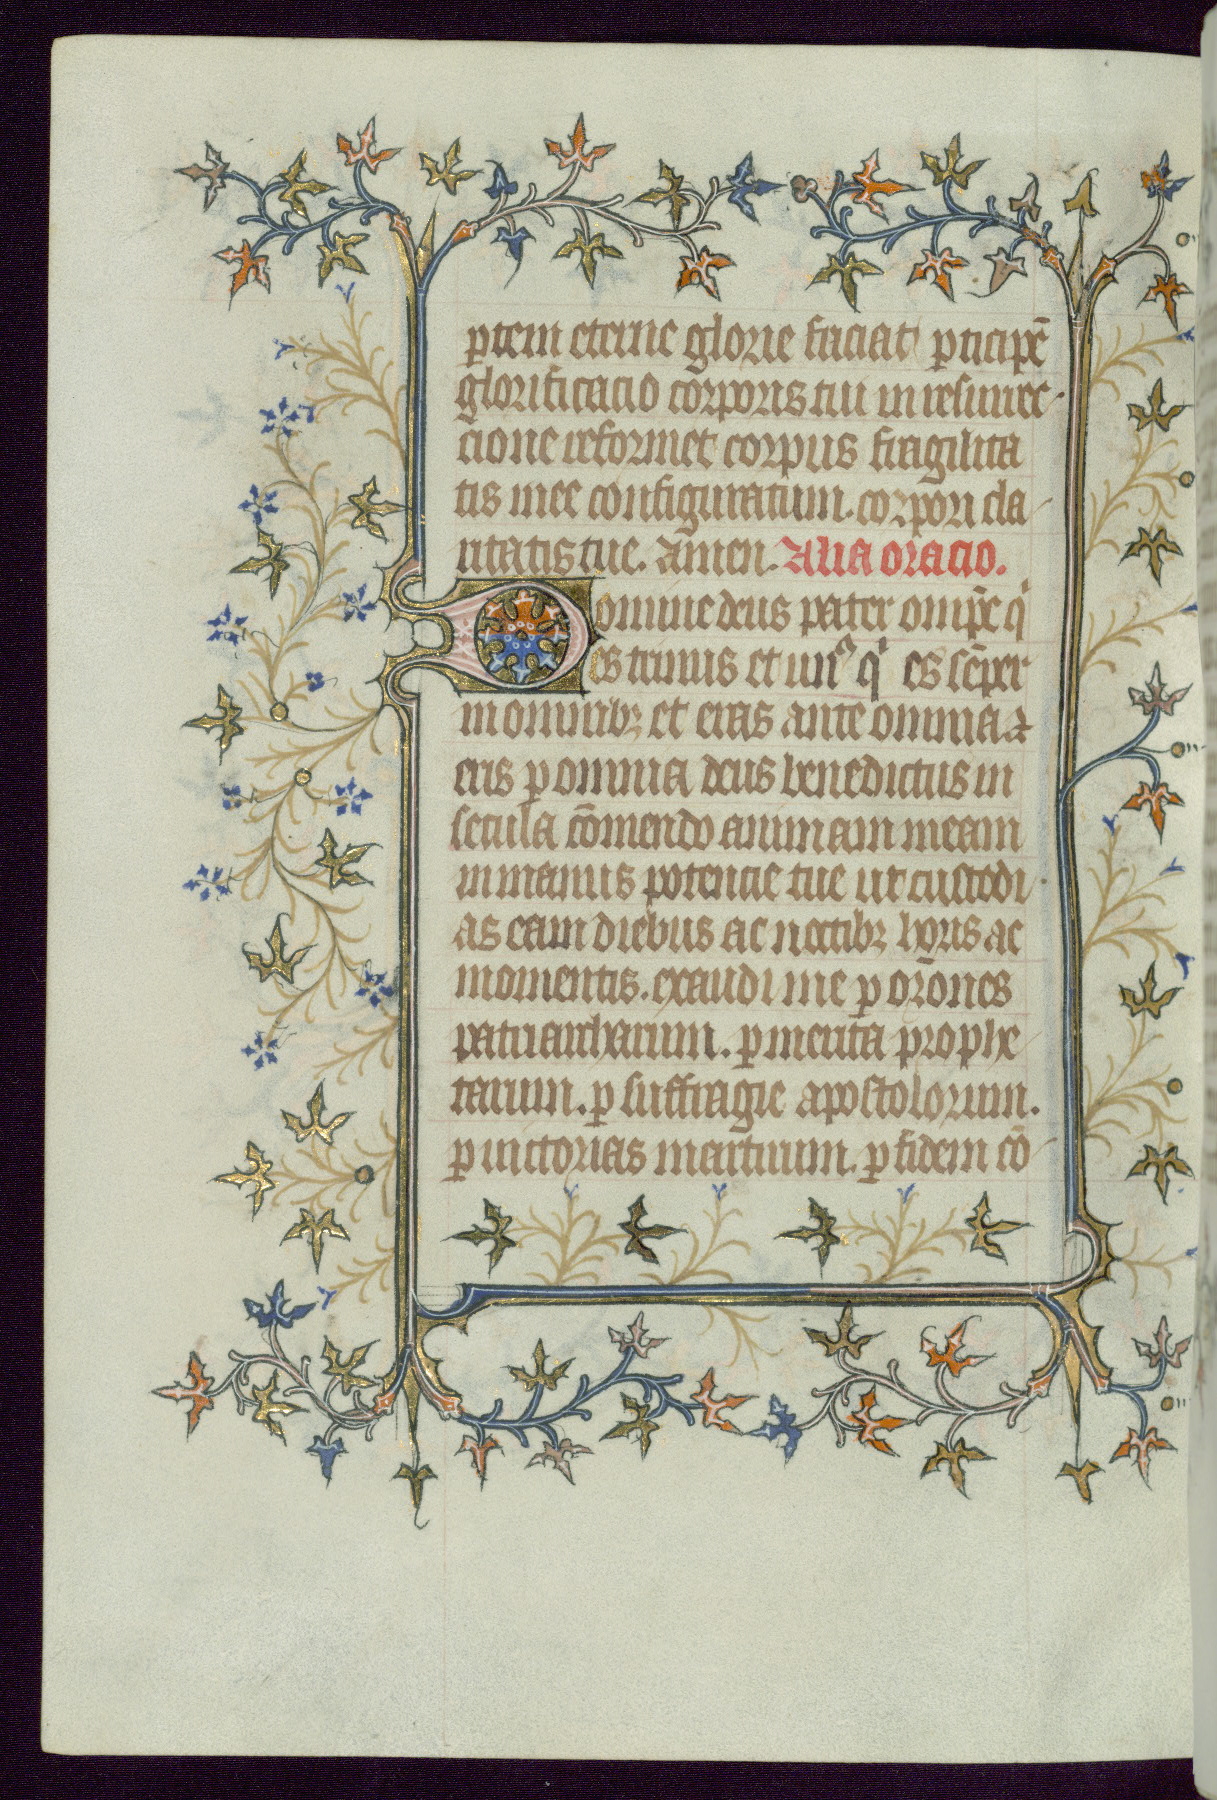 ꝑtem eterne glorie faciat ꝑticipē
glorificacio corporis tui in resurrec
cione reformet corpus fragilita
tis mee configuratum. corpori cla
ritatis tue. amen. Alia oracio.
Domine deus pater omp̄e qi
es trinus et unꝰ qi es sēper
in omnibꝫ et eras ante omnia ⁊
eris ꝑ omnia deus benedictus in
secula cōmendo animam meam
in manus potencie tue ut custodi
as eam diebus ac noctibꝫ horis ac
momentis. exaudi me ꝑ orōnes
patriarcharum. ꝑ merita prophe
tarum. ꝑ suffragie apostolorum.
ꝑ uictorias martirum. ꝑ fidem cō